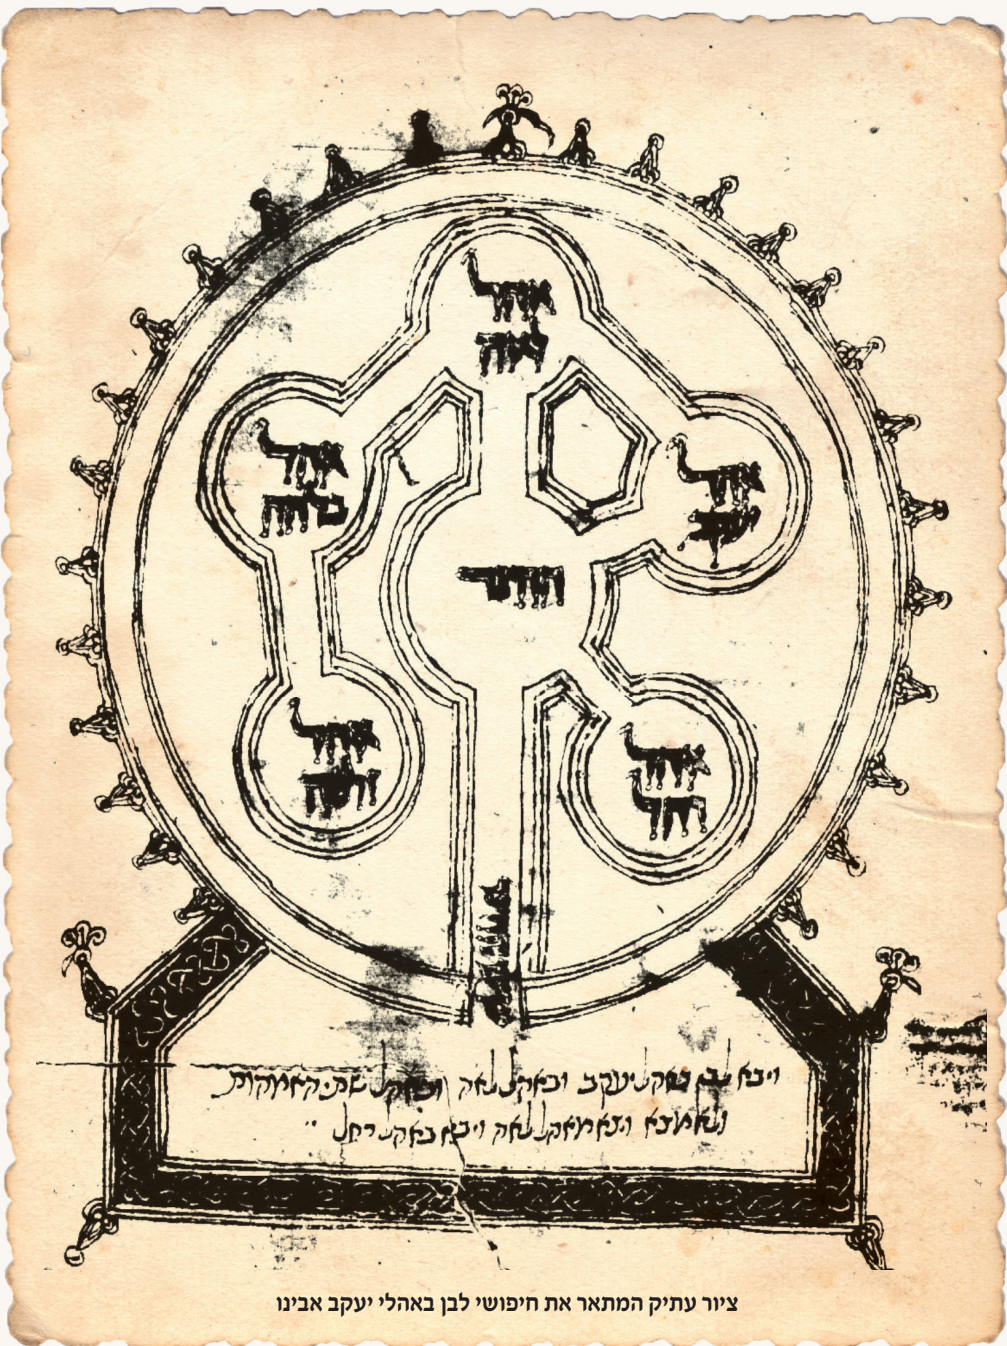 אהל
לאה
אהל
בלהה
אהל
יעקב
אהל
זלפה
אהל
רחל
ויבא לבן באהל יעקב ובאהל לאה ובאהל שתי האמהות
ולא מצא ויצא מאהל לאה ויבא באהל רחל
ציור עתיק המתאר את חיפושי לבן באהלי יעקב אבינו